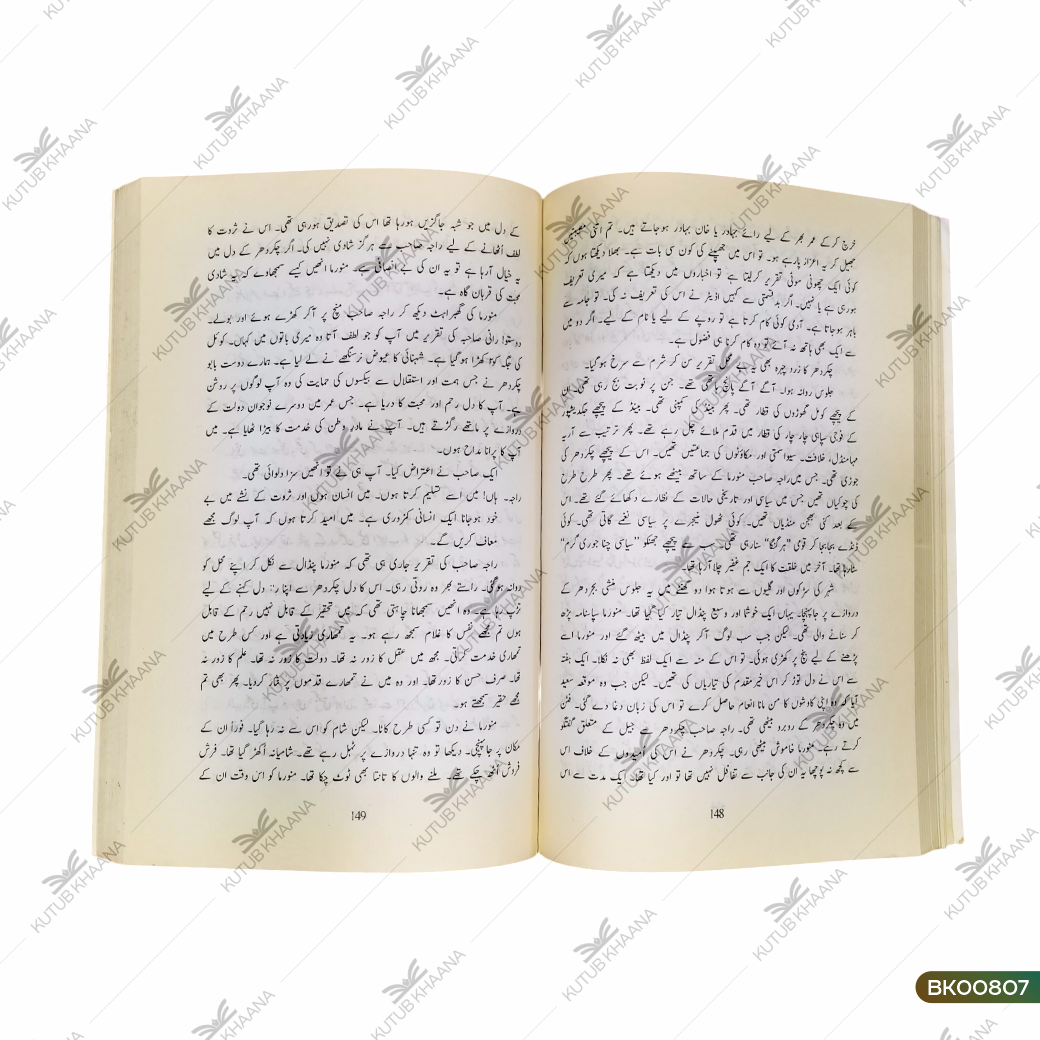 خرچ کرکے عمر بھر کے لیے رائے بہادر یا خان بہادر ہوجاتے ہیں۔ تم اتنی مصیبتیں
جھیل کر یہ اعزاز پارہے ہو۔ تو اس میں جھپنے کی کون سی بات ہے۔ بھلا دیکھتا ہوں کہ
کوئی ایک چھوٹی موٹی تقریر کرلیتا ہے تو اخباروں میں دیکھتا ہے کہ میری تعریف
ہورہی ہے یا نہیں۔ اگر بدقسمتی سے کہیں اڈیٹر نے اس کی تعریف نہ کی۔ تو جامہ سے
باہر ہوجاتا ہے۔ آدمی کوئی کام کرتا ہے تو روپے کے لیے یا نام کے لیے۔ اگر دو میں
سے ایک بھی ہاتھ نہ آئے تو وہ کام کرنا ہی فضول ہے۔
چکردھر کا زرد چہرہ بھی یہ بے محل تقریر سن کر شرم سے سرخ ہوگیا۔
جلوس روانہ ہوا۔ آگے آگے پانچ ہاتھی تھے۔ جن پر نوبت بج رہی تھی۔ ان
کے پیچھے کوتل گھوڑوں کی قطار تھی۔ پھر بینڈ کی کمپنی تھی۔ بینڈ کے پیچھے جگدیشپور
کے فوجی سپاہی چار چار کی قطار میں قدم ملائے چل رہے تھے۔ پھر ترتیب سے آریہ
مہامنڈل، خلافت، سیواسمتی اور سکاؤٹوں کی جماعتیں تھیں۔ اس کے پیچھے چکردھر کی
جوڑی تھی۔ جس میں راجہ صاحب منورما کے ساتھ بیٹھے ہوئے تھے۔ پھر طرح طرح
کی چوکیاں تھیں جس میں سیاسی اور تاریخی حالات کے نظارے دکھائے گئے تھے۔ اس
کے بعد کئی بھجن منڈلیاں تھیں۔ کوئی ڈھول منجیرے پر سیاسی نغمے گاتی تھی۔ کوئی
ڈنڈے بجا بجا کر قومی "ہرگنگا" سنا رہی تھی۔ سب کے پیچھے "سیاسی چنا جوری گرم"
سنارہا تھا۔ آخر میں خلقت کا ایک جم غفیر چلا آرہا تھا۔
شہر کی سڑکوں اور گلیوں سے ہوتا ہوا دو گھنٹے میں یہ جلوس منشی بجردھر کے
دروازے پر جاپہنچا۔ یہاں ایک خوشنما اور وسیع پنڈال تیار کیا گیا تھا۔ منورما سپاسنامہ پڑھ
کر سنانے والی تھی۔ لیکن جب سب لوگ آکر پنڈال میں بیٹھ گئے اور منورما اسے
پڑھنے کے لیے منچ پر کھڑی ہوئی۔ تو اس کے منہ سے ایک لفظ بھی نہ نکلا۔ ایک ہفتہ
سے اس نے دل توڑ کر اس خیر مقدم کی تیاریاں کی تھیں۔ لیکن جب وہ موقعہ سعید
آیا کہ وہ اپنی کاوشوں کا من مانا انعام حاصل کرے تو اس کی زبان دغا دے گئی۔ فٹن
میں وہ چکردھر کے روبرو بیٹھی تھی۔ راجہ صاحب چکردھر سے جیل کے متعلق گفتگو
کرتے رہے۔ منورما خاموش بیٹھی رہی۔ چکردھر نے اس کی اُمیدوں کے خلاف اس
سے کچھ نہ پوچھا یہ ان کی جانب سے تغافل نہیں تھا تو اور کیا تھا۔ ایک مدت سے اس
148
کے دل میں جو شبہ جاگزیں ہورہا تھا اس کی تصدیق ہورہی تھی۔ اس نے ثروت کا
لطف اُٹھانے کے لیے راجہ صاحب سے ہرگز شادی نہیں کی۔ اگر چکردھر کے دل میں
یہ خیال آرہا ہے تو یہ ان کی بے انصافی ہے۔ منورما انھیں کیسے سمجھاوے کہ یہ شادی
محبت کی قربان گاہ ہے۔
منورما کی گھبراہٹ دیکھ کر راجہ صاحب منچ پر آکر کھڑے ہوئے اور بولے۔
دوستو! رانی صاحبہ کی تقریر میں آپ کو جو لطف آتا وہ میری باتوں میں کہاں۔ کوئل
کی جگہ کوا کھڑا ہوگیا ہے۔ شہنائی کا عیوض نرسنگھے نے لے لیا ہے۔ ہمارے دوست بابو
چکردھر نے جس ہمت اور استقلال سے بیکسوں کی حمایت کی وہ آپ لوگوں پر روشن
ہے۔ آپ کا دل رحم اور محبت کا دریا ہے۔ جس عمر میں دوسرے نوجوان دولت کے
دروازے پر ماتھے رگڑتے ہیں۔ آپ نے مادرِ وطن کی خدمت کا بیڑا اٹھایا ہے۔ میں
آپ کا پرانا مداح ہوں۔
ایک صاحب نے اعتراض کیا۔ آپ ہی نے تو انھیں سزا دلوائی تھی۔
راجہ۔ ہاں! میں اسے تسلیم کرتا ہوں۔ میں انسان ہوں اور ثروت کے نشے میں بے
خود ہوجانا ایک انسانی کمزوری ہے۔ میں امید کرتا ہوں کہ آپ لوگ مجھے
معاف کریں گے۔
راجہ صاحب کی تقریر جاری ہی تھی کہ منورما پنڈال سے نکل کر اپنے محل کو
روانہ ہوگئی۔ راستے بھر وہ روتی رہی۔ اس کا دل چکردھر سے اپنا رد دل کہنے کے لیے
تڑپ رہا ہے۔ وہ انھیں سمجھانا چاہتی تھی کہ میں تحقیر کے قابل نہیں رحم کے قابل
ہوں تم مجھے نفس کا غلام سمجھ رہے ہو۔ یہ تمھاری زیادتی ہے اور کس طرح میں
تمھاری خدمت کرتی۔ مجھ میں عقل کا زور نہ تھا۔ دولت کا زور نہ تھا۔ علم کا زور نہ
تھا۔ صرف حسن کا زور تھا۔ اور وہ میں نے تمھارے قدموں پر نثار کردیا۔ پھر بھی تم
مجھے حقیر سمجھتے ہو۔
منورما نے دن تو کسی طرح کاٹا۔ لیکن شام کو اس سے نہ رہا گیا۔ فوراً ان کے
مکان پر جاپہنچی۔ دیکھا تو وہ تنہا دروازے پر ٹہل رہے تھے۔ شامیانہ اُکھڑ گیا تھا۔ فرش
فروش اُٹھ چکے تھے۔ ملنے والوں کا تانتا بھی ٹوٹ چکا تھا۔ منورما کو اس وقت ان کے
149
KUTUB KHAANA
BK00807